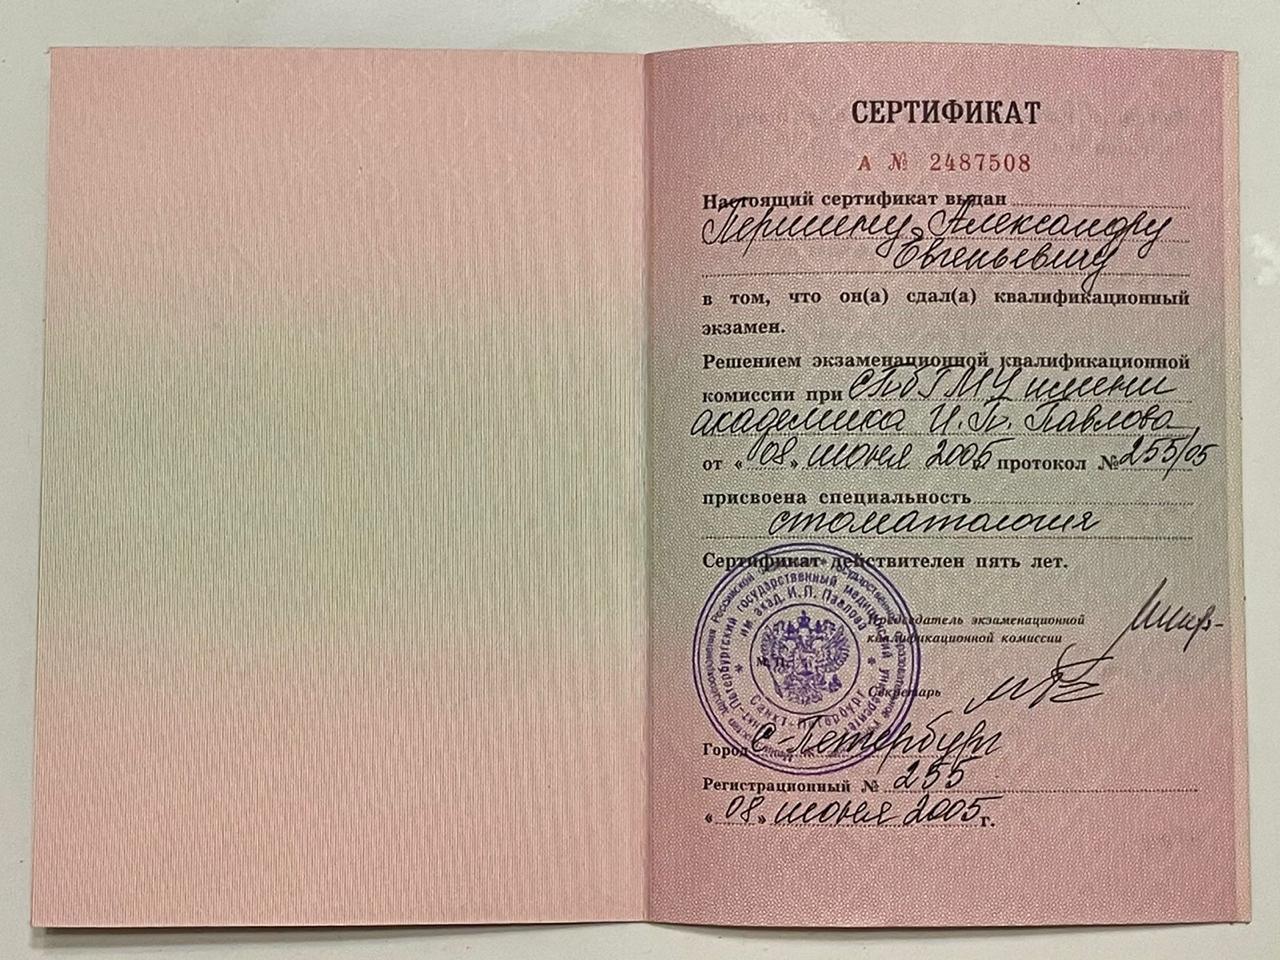 СЕРТИФИКАТ
А № 2487508
Настоящий сертификат выдан
Першину Александру
Евгеньевичу
в том, что он(а) сдал(а) квалификационный
экзамен.
Решением экзаменационной квалификационной
комиссии при СПбГМУ имени
академика И. П. Павлова
от «08» июня 2005 г. протокол № 255/05
присвоена специальность
стоматология
Сертификат действителен пять лет.
Председатель экзаменационной
квалификационной комиссии
М. П.
Секретарь
Город С-Петербург
Регистрационный № 255
«08» июня 2005 г.
государственный медицинский университет
им. акад. И. П. Павлова
Санкт-Петербург